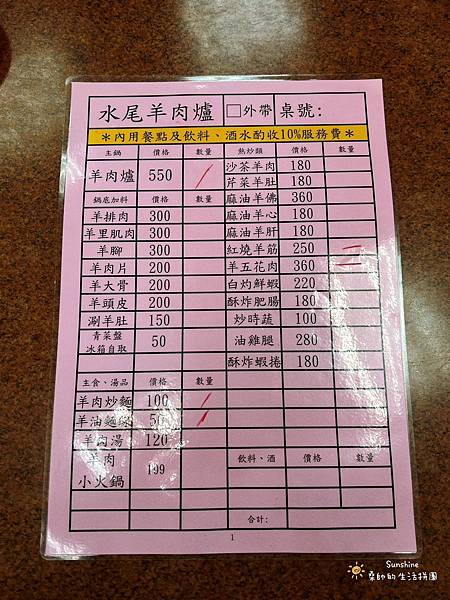 水尾羊肉爐 □外帶 桌號:
＊內用餐點及飲料、酒水酌收10%服務費＊
主鍋 價格 數量 熱炒類 價格 數量
羊肉爐 550
沙茶羊肉 180
芹菜羊肚 180
鍋底加料 價格 數量 麻油羊佛 360
羊排肉 300 麻油羊心 180
羊里肌肉 300 麻油羊肝 180
羊腳 300 紅燒羊筋 250
羊肉片 200 羊五花肉 360
羊大骨 200 白灼鮮蝦 220
羊頭皮 200 酥炸肥腸 180
涮羊肚 150 炒時蔬 100
青菜盤
冰箱自取 50 油雞腿 280
酥炸蝦捲 180
主食、湯品 價格 數量
羊肉炒麵 100
羊油麵線 50
羊肉湯 120
羊肉
小火鍋 199
飲料、酒 價格 數量
合計:
1
Sunshine